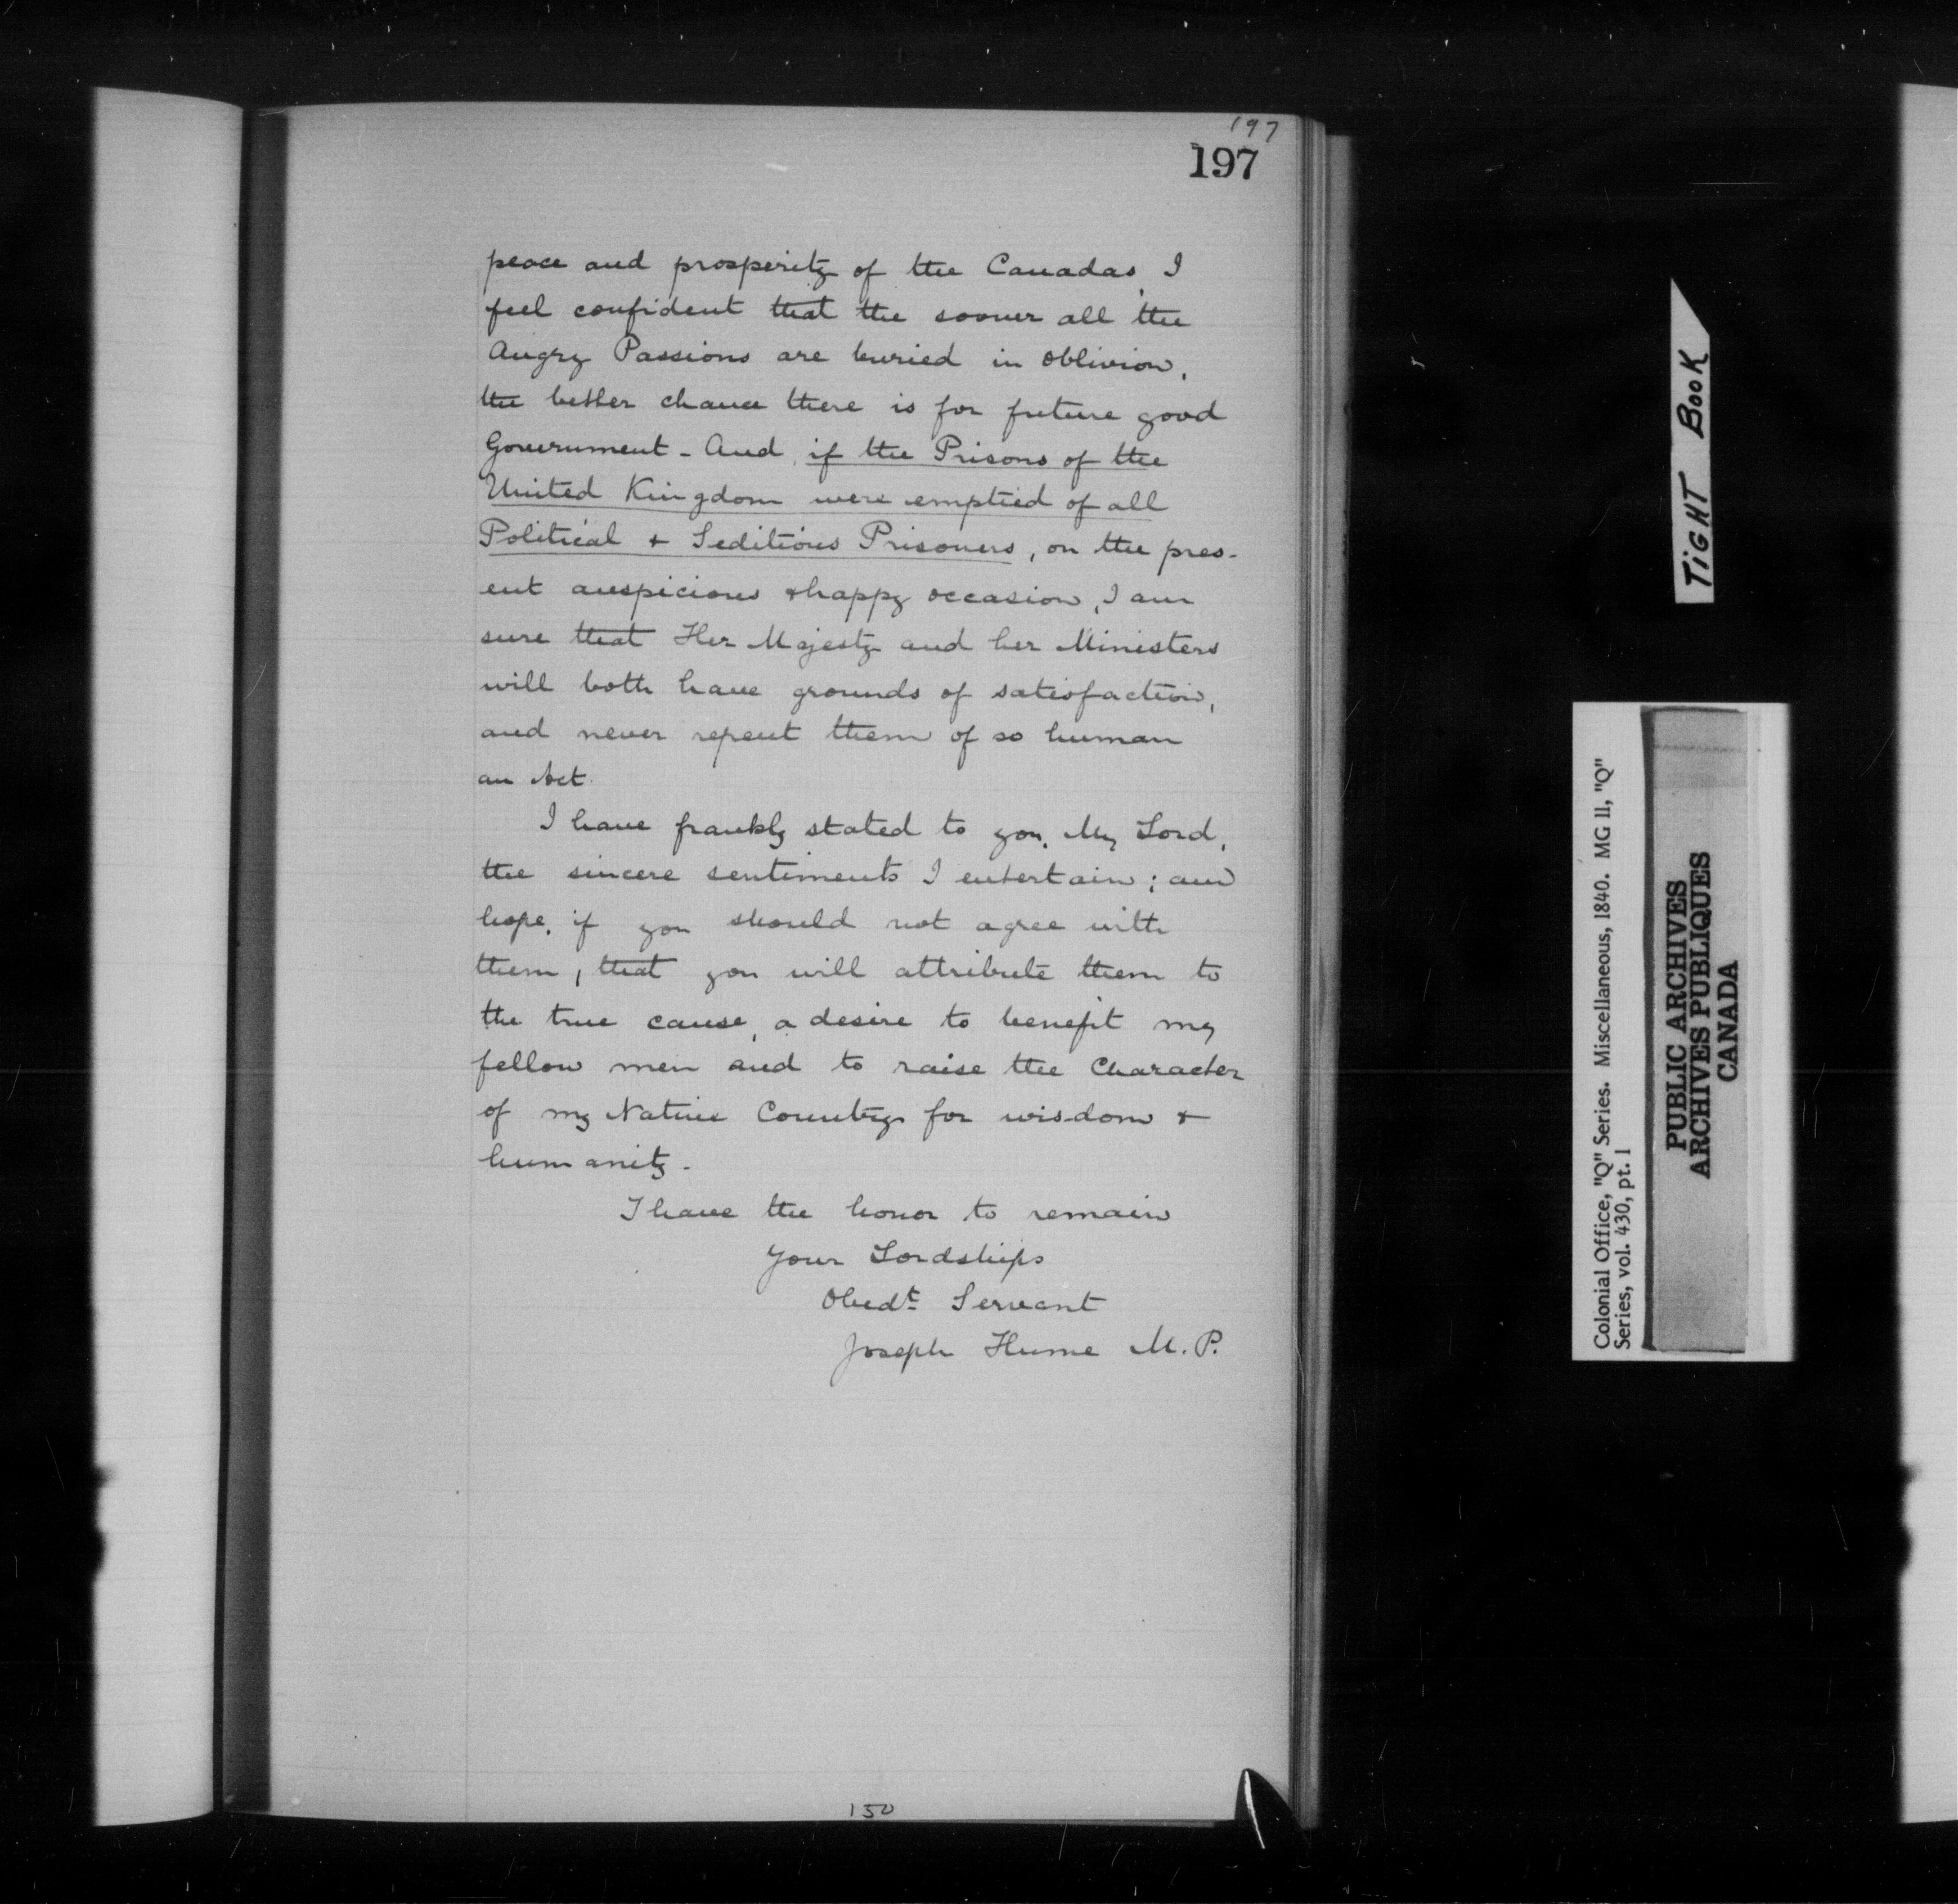 197
197
peace and prosperity of the Canadas, I
feel confident that the sooner all the
Angry Passions are buried in oblivion,
the better chance there is for future good
Government - And, if the Prisons of the
United Kingdom were emptied of all
Political + Seditious Prisoners, on the pres-
ent auspicious + happy occasion, I am
sure that Her Majesty and her Ministers
will both have grounds of satisfaction,
and never repent them of so human
an Act.
I have frankly stated to you, My Lord,
the sincere sentiments I entertain; and
hope, if you should not agree with
them, that you will attribute them to
the true cause, a desire to benefit my
fellow men and to raise the Character
of my Native Country for wisdom +
humanity.
I have the honor to remain
Your Lordships
Obedt. Servant
Joseph Hume M.P.
150
TiGHT BOOK
Colonial Office, "Q" Series. Miscellaneous, 1840. MG 11, "Q"
Series, vol. 430, pt. 1
PUBLIC ARCHIVES
ARCHIVES PUBLIQUES
CANADA